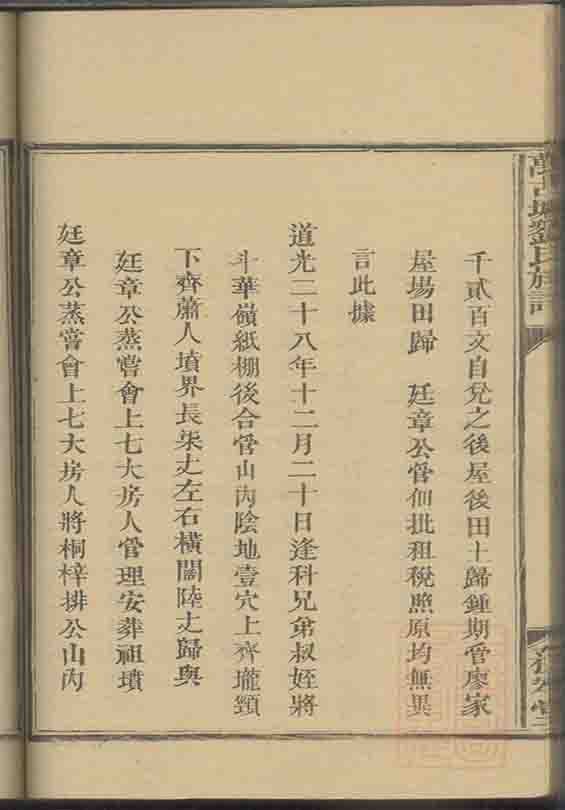 千貳百文自兌之後屋後田土歸鍾期管廖家
屋場田歸　廷章公管佃批租稅照原均無異
言此據
道光二十八年十二月二十日逢科兄弟叔姪將
斗華嶺紙棚後合管山內陰地壹穴上齊壠頸
下齊蕭人墳界長柒丈左右橫闊陸丈歸與
廷章公蒸嘗會上七大房人管理安葬祖墳
廷章公蒸嘗會上七大房人將桐梓排公山內
劉氏族譜